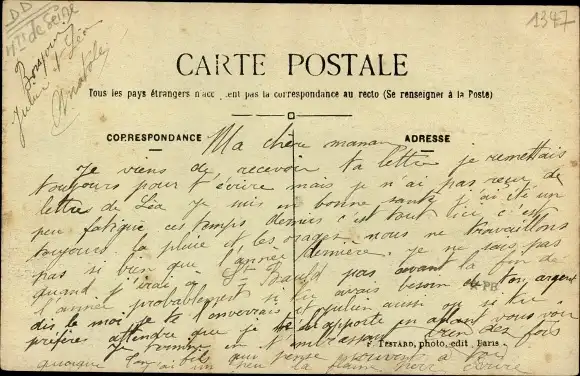 DD
Hte de Seine
1347
Bonjour
Julien et Léa
Anatole
CARTE POSTALE
Tous les pays étrangers n'acc ent pas la correspondance au recto (Se renseigner à la Poste)
CORRESPONDANCE
ADRESSE
Ma chère maman
Je viens de recevoir ta lettre je remettais
toujours pour t'écrire mais je n'ai pas reçu de
lettres de Léa Je suis en bonne santé j'ai été un
peu fatigué ces temps derniers c'est tout ici c'est
toujours la pluie et les orages nous ne travaillons
pas si bien que l'année dernière. je ne sais pas
quand j'irai à St Bauld pas avant la fin de
l'année probablement si tu avais besoin de ton argent
dis le moi je te l'enverrais et julien aussi ou si tu
préfères attendre que je te l'apporte en allant vous voir
Je termine en t'embrassant bien des fois
quoique ton fils qui pense souvent à toi
un peu la flemme pour écrire
PB
P. TESTARD, photo. edit Paris